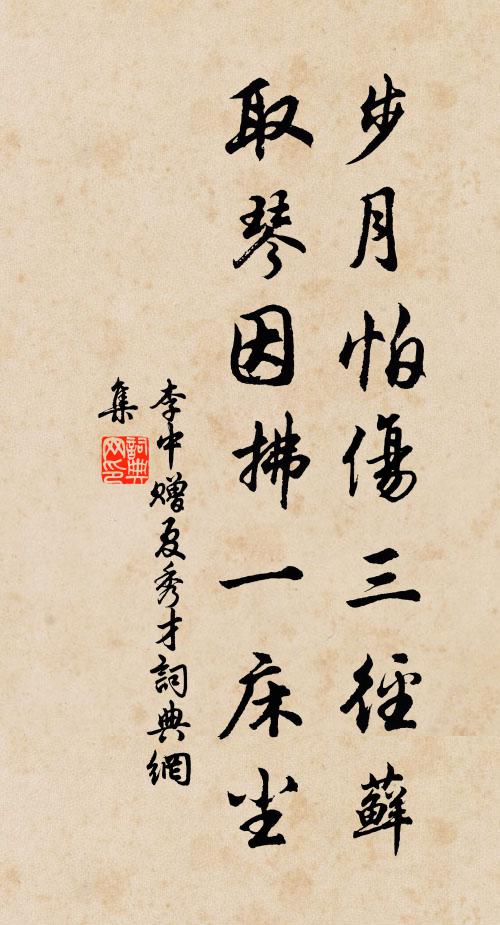 步月怕傷三徑蘚
取琴因拂一床尘
李中贈夏秀才詞典網
集
詞典网印